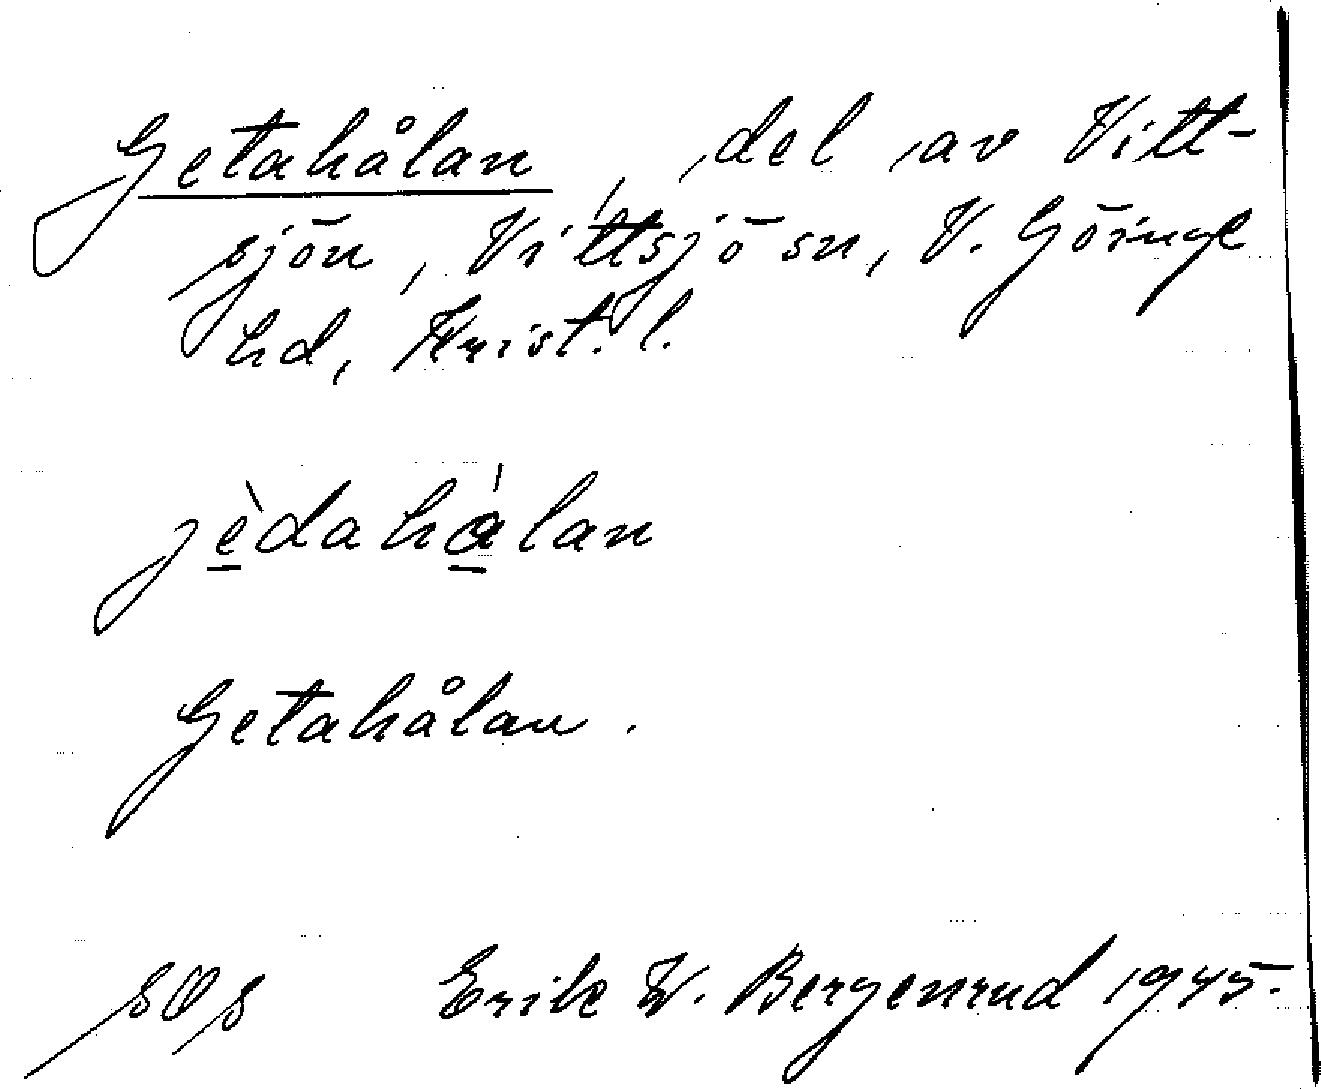 Getahålan, del av Vitt-
sjön, Vittsjö sn, V. Göinge
hd, Krist. l.
jèdahálan
Getahålan.
SOS Erik W. Bergenrud 1945.